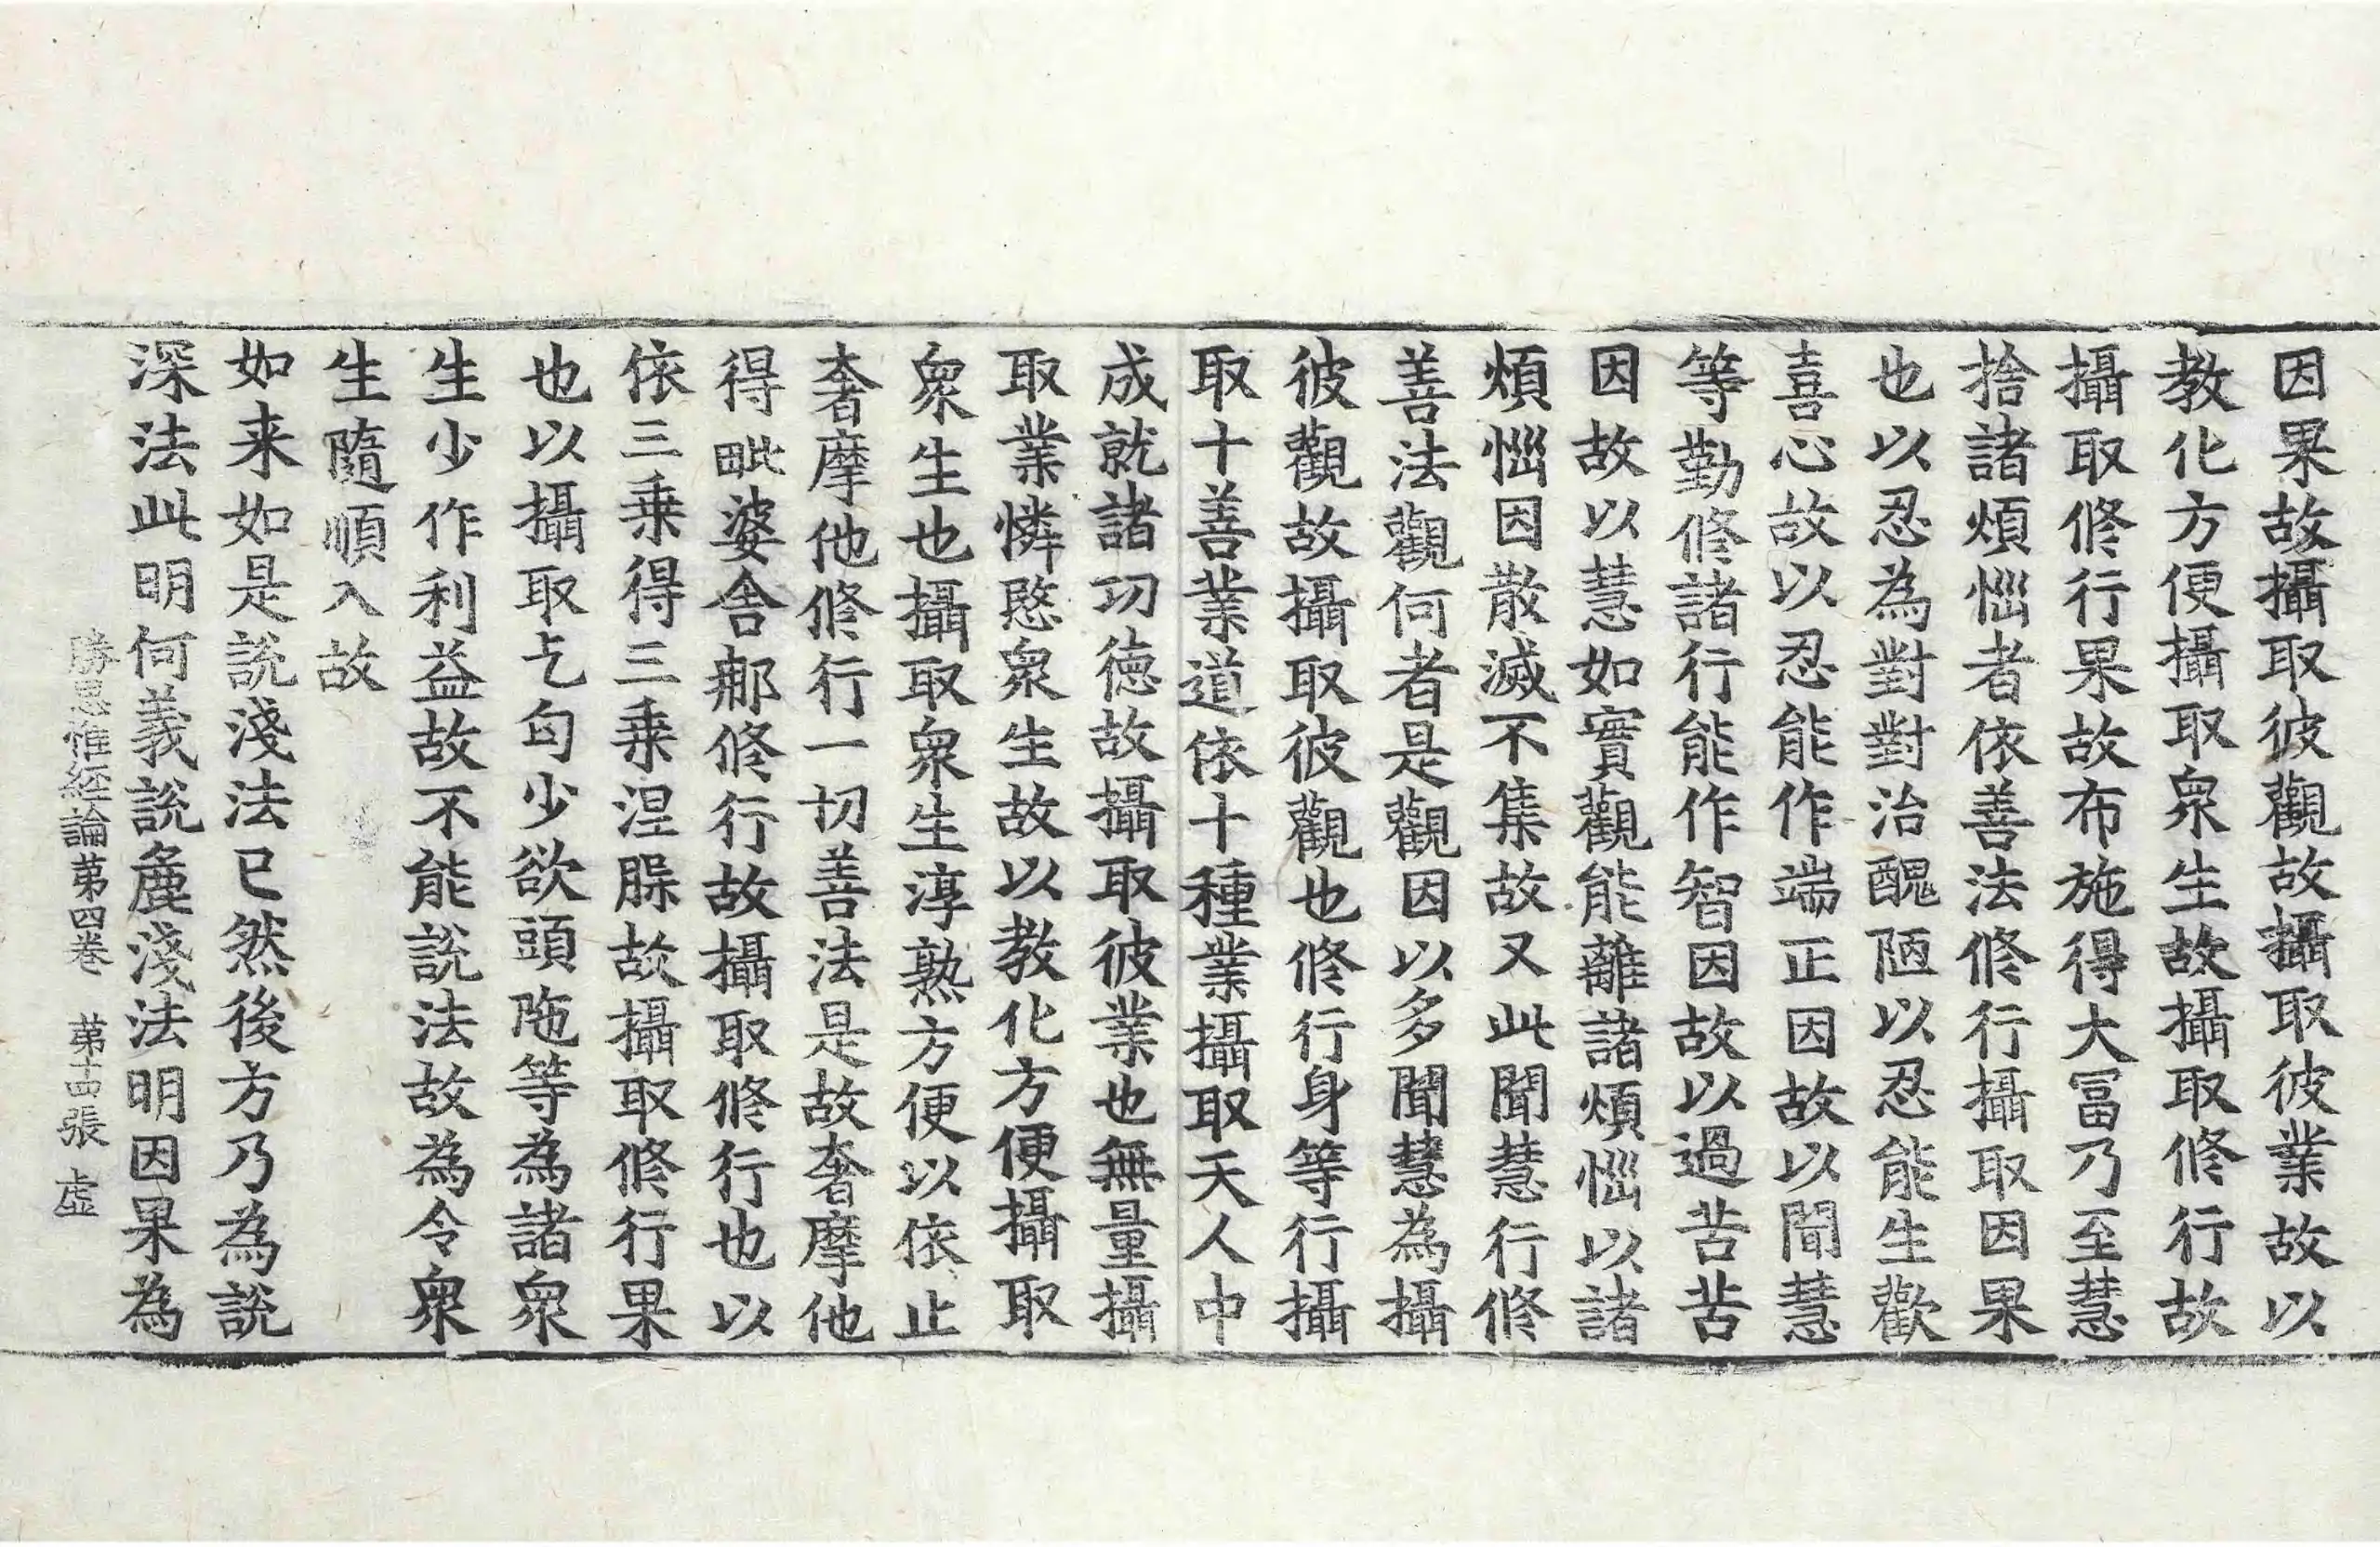 因果故攝取彼觀故攝取彼業故以
教化方便攝取衆生故攝取修行故
攝取修行果故布施得大冨乃至慧
捨諸煩惱者依善法修行攝取因果
也以忍為對對治醜陋以忍能生歡
喜心故以忍能作端正因故以聞慧
等勤修諸行能作智因故以過苦苦
因故以慧如實觀能離諸煩惱以諸
煩惱因散滅不集故又此聞慧行修
善法觀何者是觀因以多聞慧為攝
彼觀故攝取彼觀也修行身等行攝
取十善業道依十種業攝取天人中
成就諸功德故攝取彼業也無量攝
取業憐愍衆生故以教化方便攝取
衆生也攝取衆生淳熟方便以依止
奢摩他修行一切善法是故奢摩他
得毗婆舍那修行故攝取修行也以
依三乗得三乗涅槃故攝取修行果
也以攝取乞匄少欲頭陁等為諸衆
生少作利益故不能說法故為令衆
生隨順入故
如来如是說淺法已然後方乃為說
深法此明何義說麁淺法明因果為
勝思惟經論第四卷　第十四張　虛